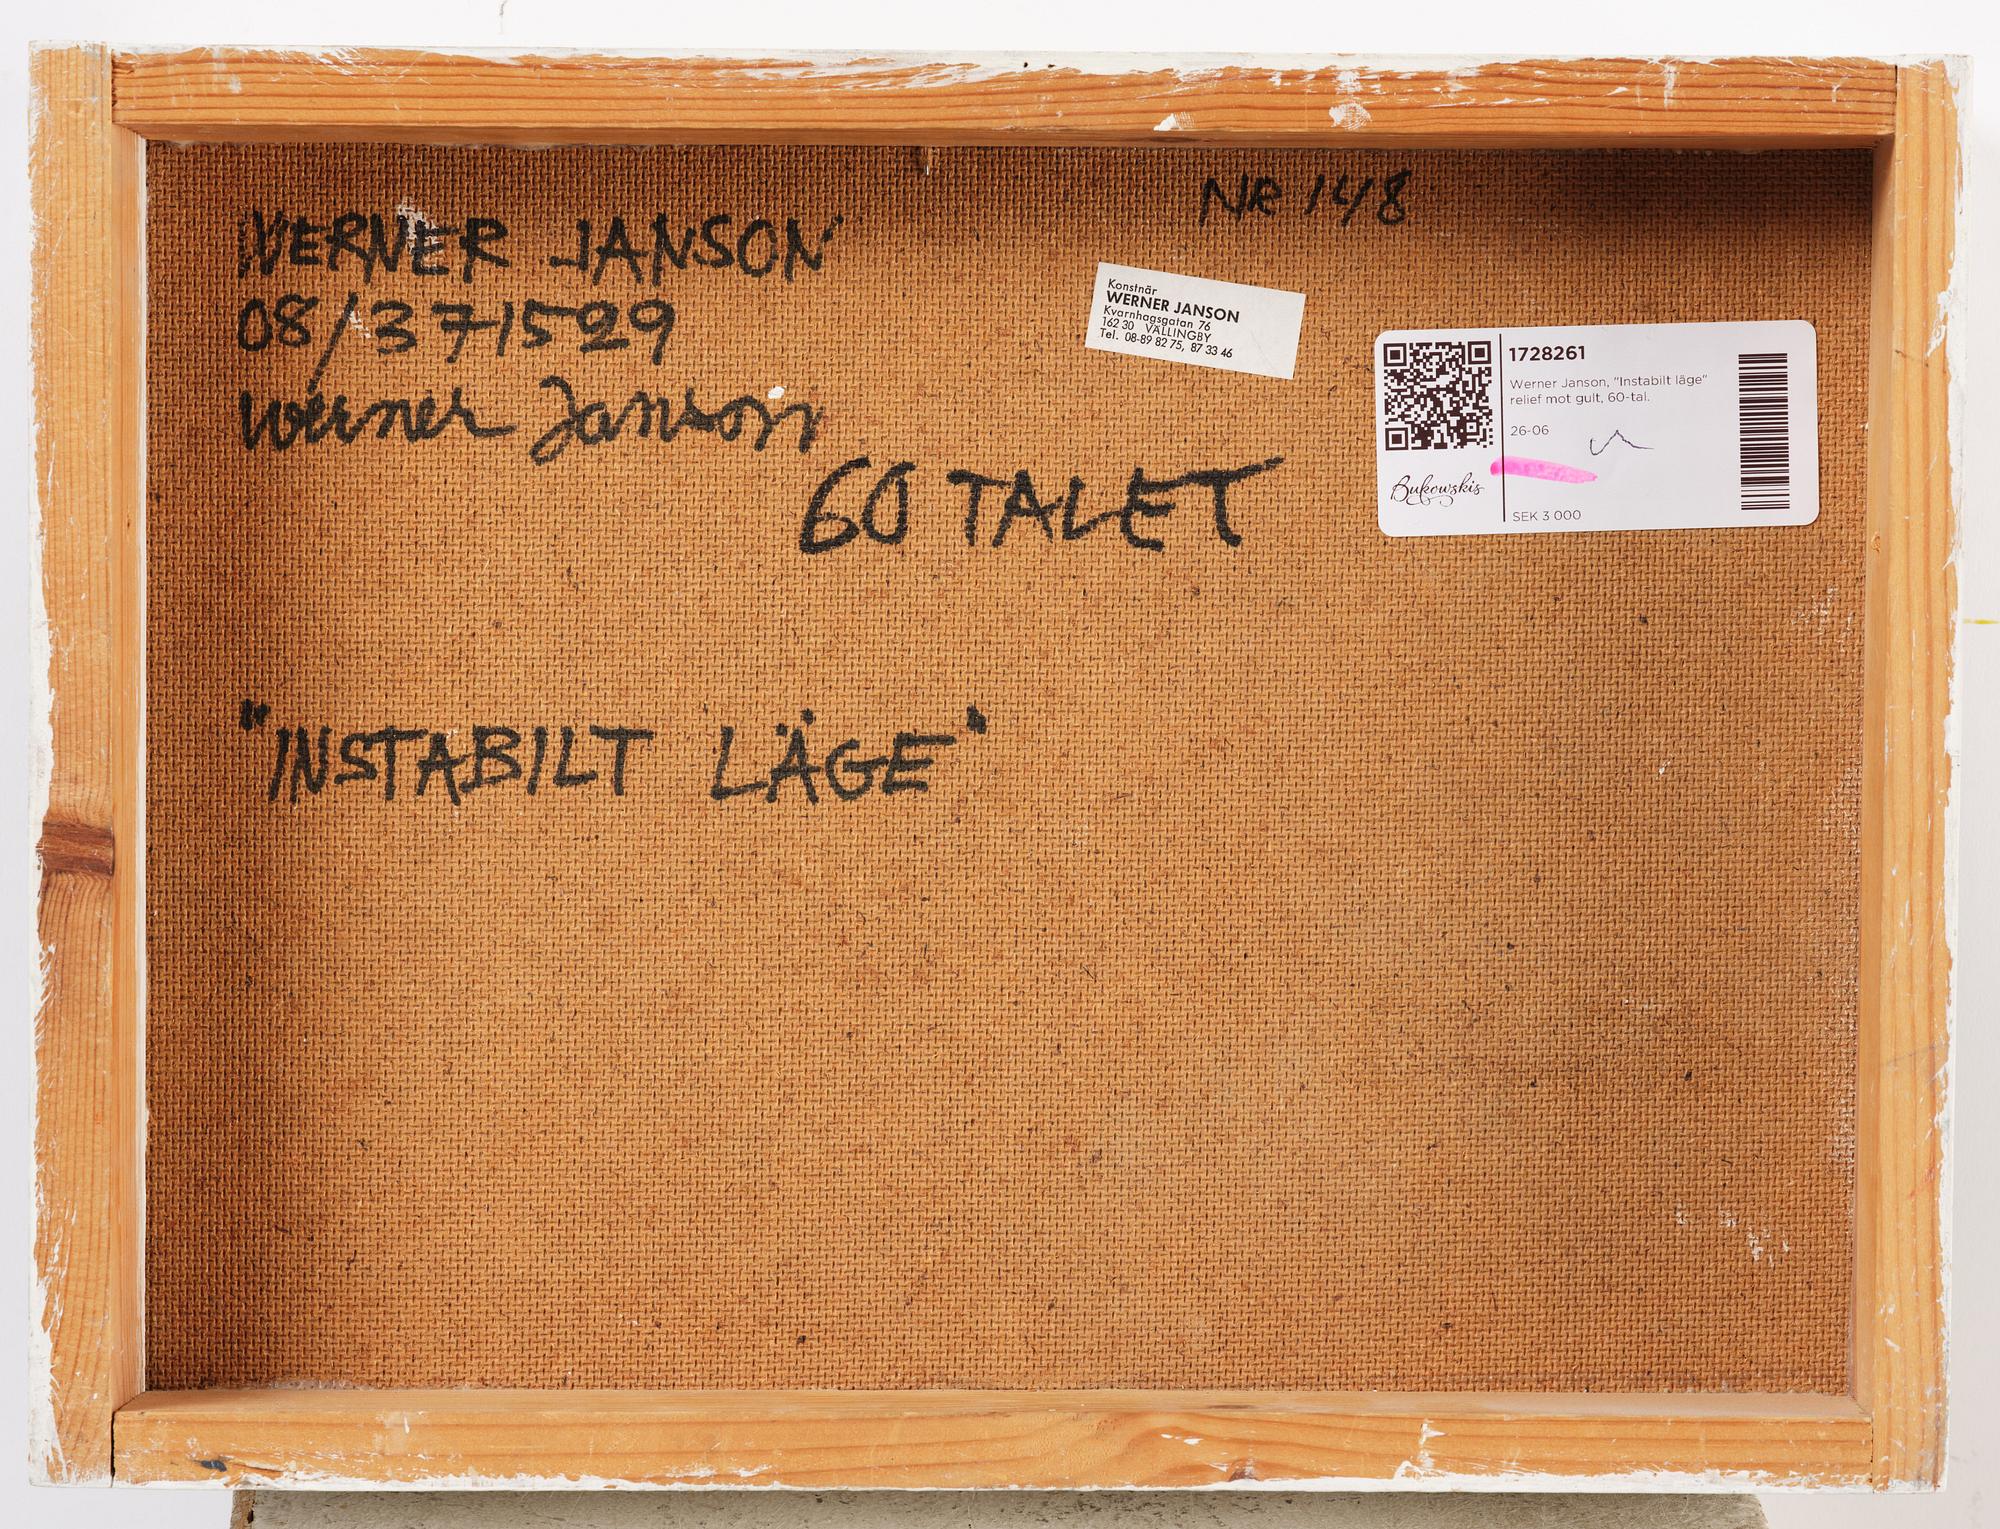 NR 148
WERNER JANSON
08/371529
Werner Janson
60 TALET
"INSTABILT LÄGE"
Konstnär
WERNER JANSON
Kvarnhagsgatan 76
162 30 VÄLLINGBY
Tel. 08-89 82 75, 87 33 46
1728261
Werner Janson, "Instabilt läge"
relief mot gult, 60-tal.
26-06
Bukowskis
SEK 3 000